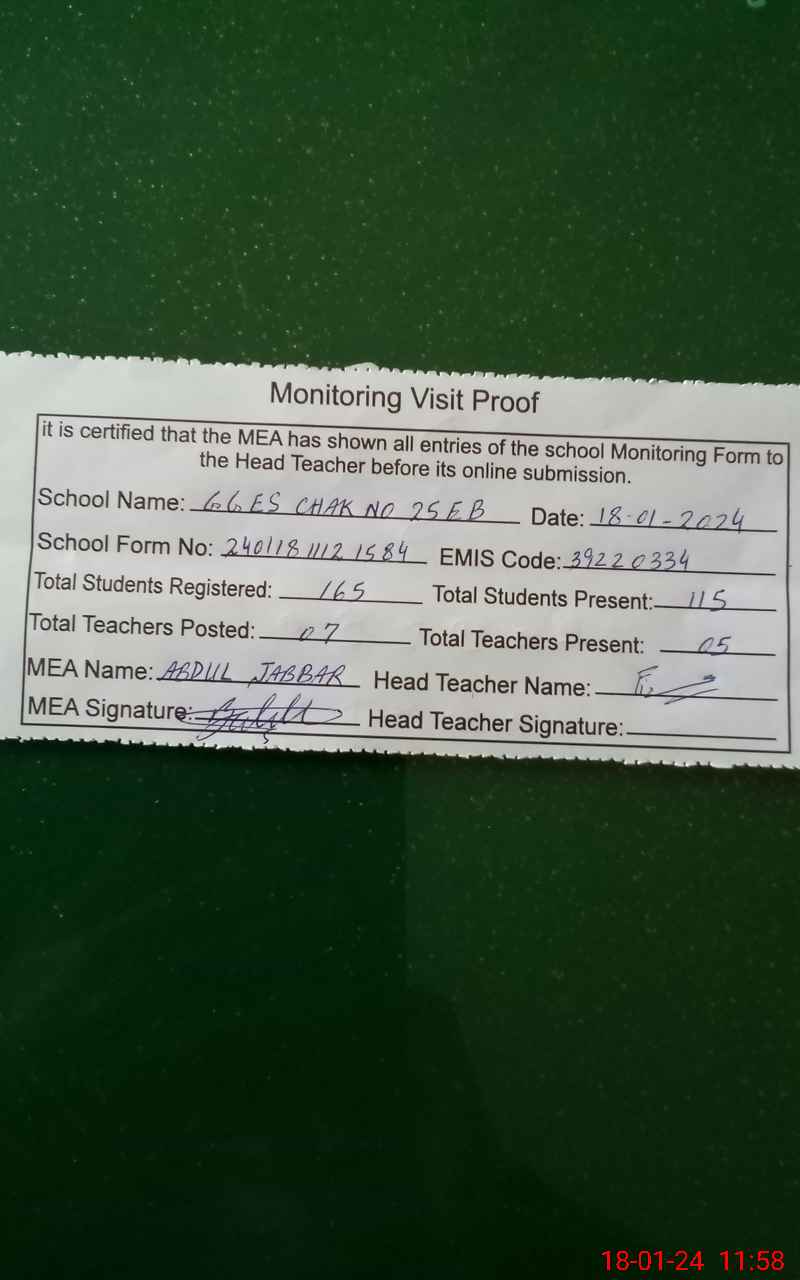 Monitoring Visit Proof
it is certified that the MEA has shown all entries of the school Monitoring Form to
the Head Teacher before its online submission.
School Name: GGES CHAK NO 25EB Date: 18-01-2024
School Form No: 240118 1112 1584 EMIS Code: 39220334
Total Students Registered: 165 Total Students Present: 115
Total Teachers Posted: 07 Total Teachers Present: 05
MEA Name: ABDUL JABBAR Head Teacher Name:
MEA Signature: Head Teacher Signature:
18-01-24 11:58